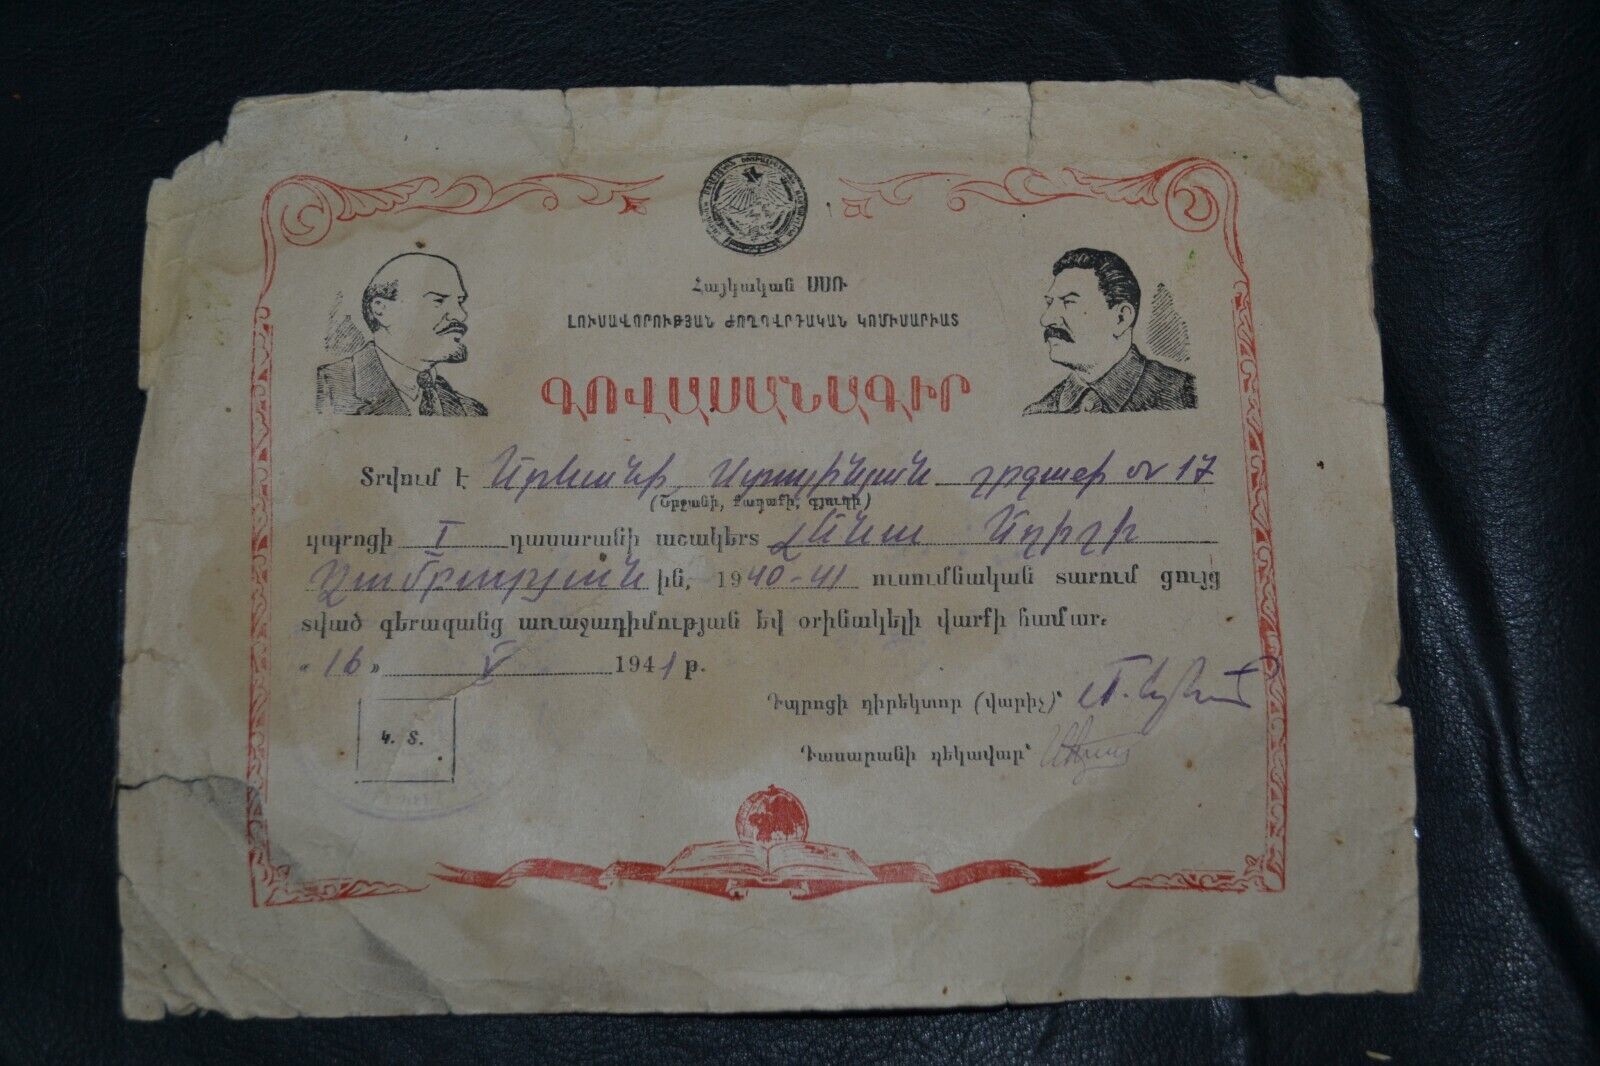 Հայկական ՍՍՌ
ԼՈՒՍԱՎՈՐՈՒԹՅԱՆ ԺՈՂՈՎՐԴԱԿԱՆ ԿՈՄԻՍԱՐԻԱՏ
ԳՈՎԱՍԱՆԱԳԻՐ
Տրվում է Երևանի Ստալինյան շրջանի № 17
(Շրջանի, Քաղաքի, գյուղի)
դպրոցի I դասարանի աշակերտ
ին, 1940-41 ուսումնական տարում ցույց
տված գերազանց առաջադիմության եվ օրինակելի վարքի համար.
«16» V 1941 թ.
Դպրոցի դիրեկտոր (վարիչ)՝
Կ. Տ.
Դասարանի ղեկավար՝